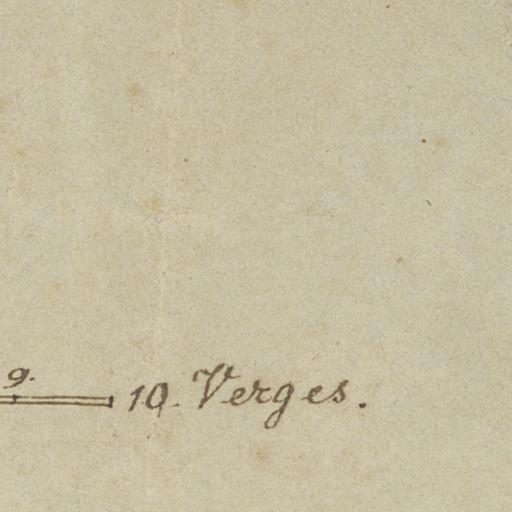 9.
10. Verges.